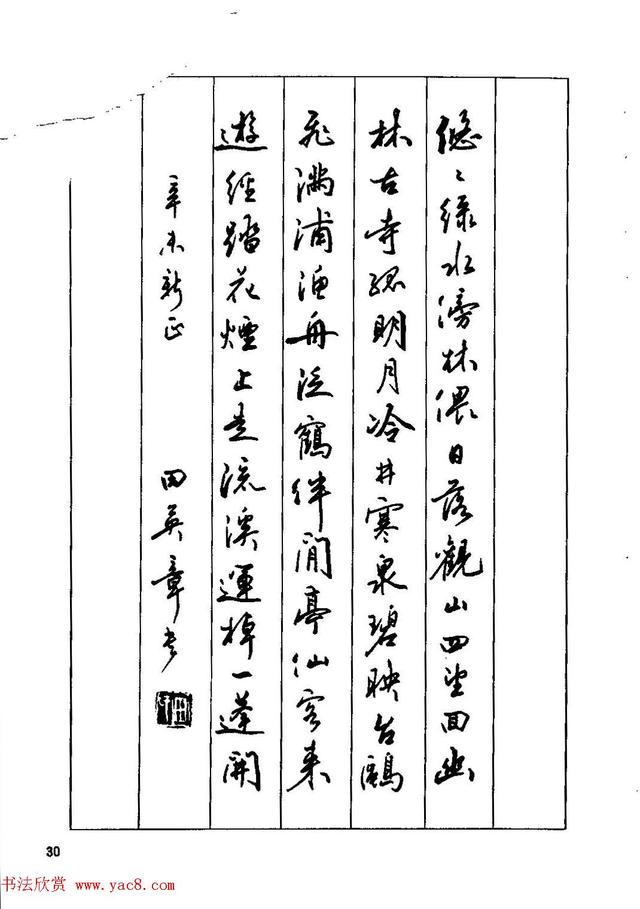 悠〻綠水傍林偎日落觀山四望回幽
林古寺孤明月冷井寒泉碧映台鷗
飛滿浦漁舟泛鶴伴閒亭仙客來
遊徑踏花煙上走流溪遠棹一篷開
辛未新正 田英章書
30
书法欣赏 www.yac8.com